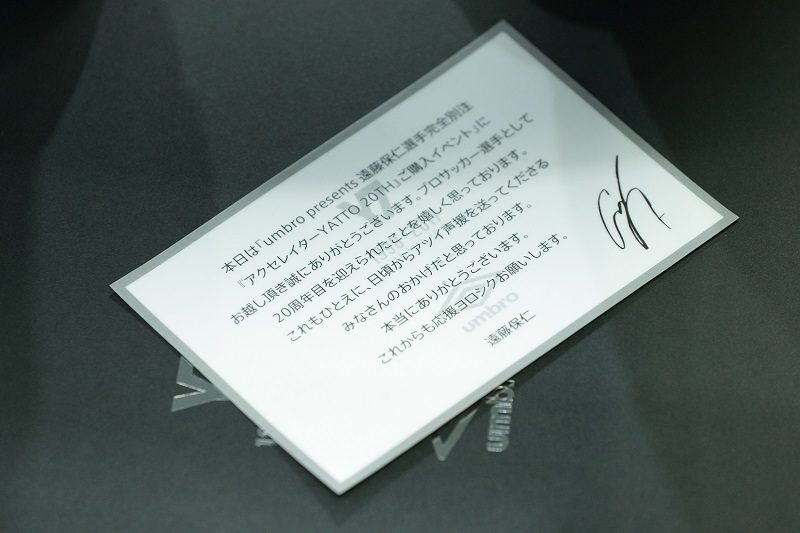 本日は「umbro presents 遠藤保仁選手完全別注
『アクセレイターYATTO 20TH』ご購入イベント」に
お越し頂き誠にありがとうございます。プロサッカー選手として
20周年目を迎えられたことを嬉しく思っております。
これもひとえに、日頃からアツイ声援を送ってくださる
みなさんのおかげだと思っております。
本当にありがとうございます。
これからも応援ヨロシクお願いします。
遠藤保仁
umbro
umbro